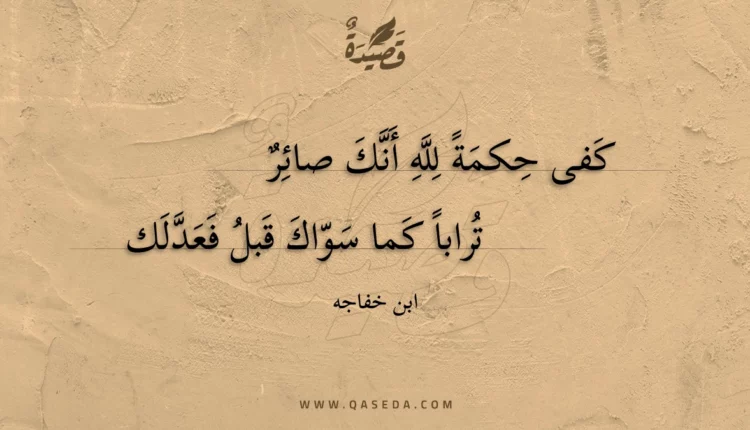 قَصِيْدَةٌ
كَفى حِكمَةً لِلَّهِ أَنَّكَ صائِرٌ
تُراباً كَما سَوّاكَ قَبلُ فَعَدَّلَك
ابن خفاجه
WWW.QASEDA.COM